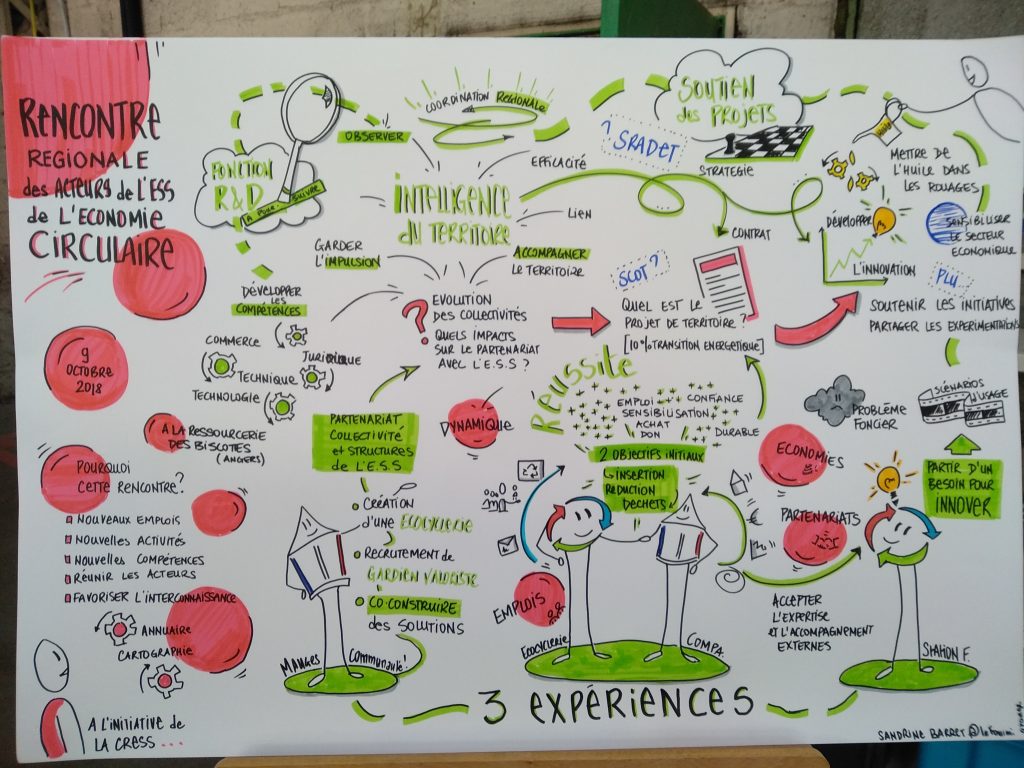 RENCONTRE
REGIONALE
des ACTEURS de L'ESS
de L'ECONOMIE
CIRCULAIRE
9
OCTOBRE
2018
A LA RESSOURCERIE
DES BISCOTTES
(ANGERS)
POURQUOI
CETTE RENCONTRE?
NOUVEAUX EMPLOIS
NOUVELLES ACTIVITÉS
NOUVELLES COMPÉTENCES
RÉUNIR LES ACTEURS
FAVORISER L'INTERCONNAISSANCE
ANNUAIRE
CARTOGRAPHIE
A L'INITIATIVE de
LA CRESS...
FONCTION
R&D
A POUR-SUIVRE
OBSERVER
COORDINATION REGIONALE
INTELLIGENCE
DU TERRITOIRE
EFFICACITÉ
LIEN
ACCOMPAGNER
LE TERRITOIRE
GARDER
L'IMPULSION
DÉVELOPPER
LES
COMPÉTENCES
COMMERCE
JURIDIQUE
TECHNIQUE
TECHNOLOGIE
SOUTIEN
des PROJETS
? SRADET
STRATÉGIE
METTRE DE
L'HUILE DANS
LES ROUAGES
DÉVELOPPER
L'INNOVATION
SENSIBILISER
LE SECTEUR
ECONOMIQUE
PLU
SOUTENIR LES INITIATIVES
PARTAGER LES EXPERIMENTATIONS
CONTRAT
SCOT ?
QUEL EST LE
PROJET DE TERRITOIRE ?
[10% TRANSITION ENERGETIQUE]
? EVOLUTION
DES COLLECTIVITÉS
QUELS IMPACTS
SUR LE PARTENARIAT
AVEC L'E.S.S ?
PARTENARIAT
COLLECTIVITÉ
et STRUCTURES
de L'E.S.S
CRÉATION
D'UNE ECOCYCLERIE
RECRUTEMENT de
GARDIEN VALORISTE
CO-CONSTRUIRE
des SOLUTIONS
MAUGES
Communauté!
DYNAMIQUE
RÉUSSITE
EMPLOI
SENSIBILISATION
ACHAT
DON
CONFIANCE
DURABLE
2 OBJECTIFS INITIAUX
INSERTION
REDUCTION
DECHETS
EMPLOIS
ECOCYCLERIE
COMPA.
ECONOMIES
PARTENARIATS
€
ACCEPTER
L'EXPERTISE
ET L'ACCOMPAGNEMENT
EXTERNES
PROBLÉME
FONCIER
SCÉNARIOS
D'USAGE
PARTIR D'UN
BESOIN POUR
INNOVER
STATION F.
3 EXPÉRIENCES
SANDRINE BARRET